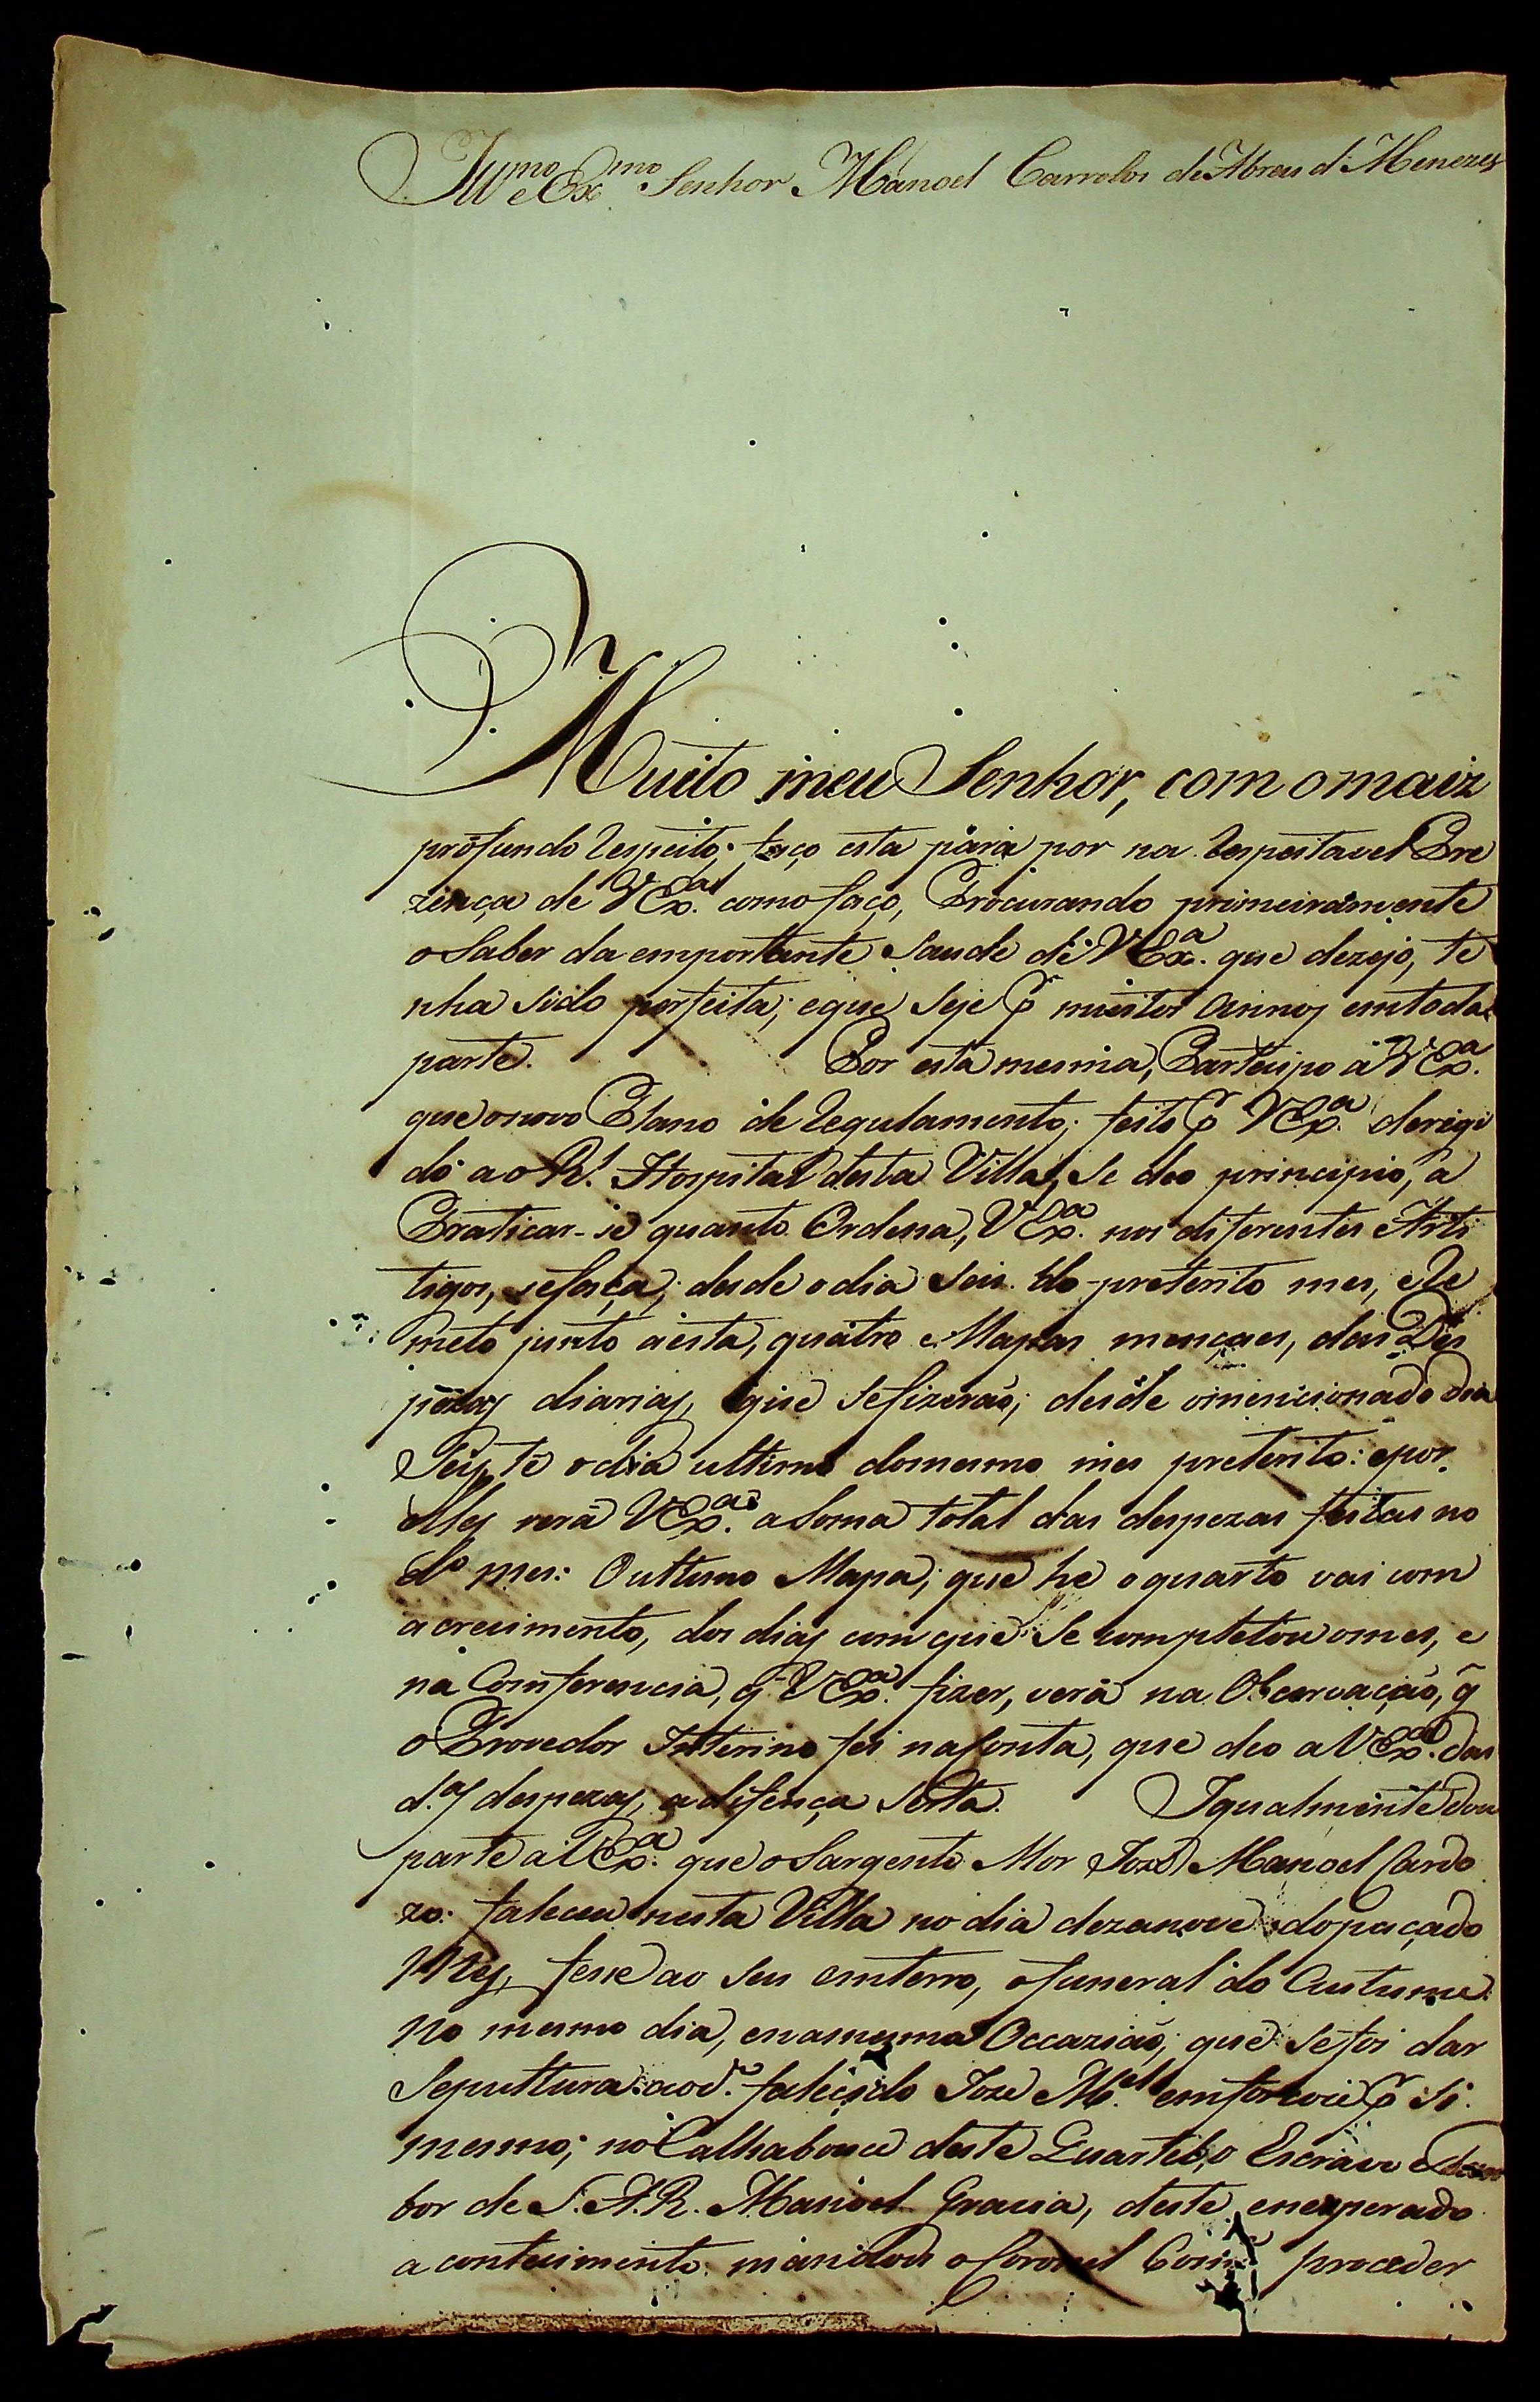 Illmo e Exmo Senhor Manoel Carvalos de Abreu d'Menezes
Muito meu Senhor, com omaiz
profundo Respeito; faço esta para por na Respeitavel Pre
zença de VExa. como faço, Procurando primeiramente
o Saber da emportante Saude de VExa. que dezejo, te
nha sido perfeita; eque seje pr muitos Annos emtoda
parte. Por esta mesma, Partecipo a VExa.
que onovo Plano de Regulamento; feito pr VExa. derigi
do ao Rl. Hospital desta Villa, se deo principio, a
Praticar-se quanto Ordena, VExa. nos diferentes Arti
tigos, sefasça; desde odia seis do preterito mes, e Re
meto junto aesta, quatro Mapas mençaes, das Des
pezas diarias, que sefizeraõ; desde omencionado dia
Seis, té odia ultimo domesmo mes preterito: epor
elles verá VExa. aSoma total das despezas feitas no
do mes: Oultimo Mapa; que he oquarto vai com
acrecimento, dos dias com que se completou omes, e
na Comferencia, q VExa. fizer, verá na Obcervaçaõ, q̃
o Provedor Interino fes naConta, que deo aVExa. das
d.as despezas, adifença serta. Igualmente dou
parte aVExa. que oSargento Mor Joze Manoel Cardo
zo. faleceu nesta Villa no dia dezanove dopaçado
Mes, fesse ao seu emterro, ofuneral do Custume.
No mesmo dia, enamesma Occaziaõ; que sefoi dar
Sepultura aod.o falecido Joze Mel. emforcouce pr si
mesmo; no Calhabouce deste Quartel, o Escravo
bor de S.A.R. Manoel Gracia, deste enexperado
acontecimento mandou oCoronel Come proceder